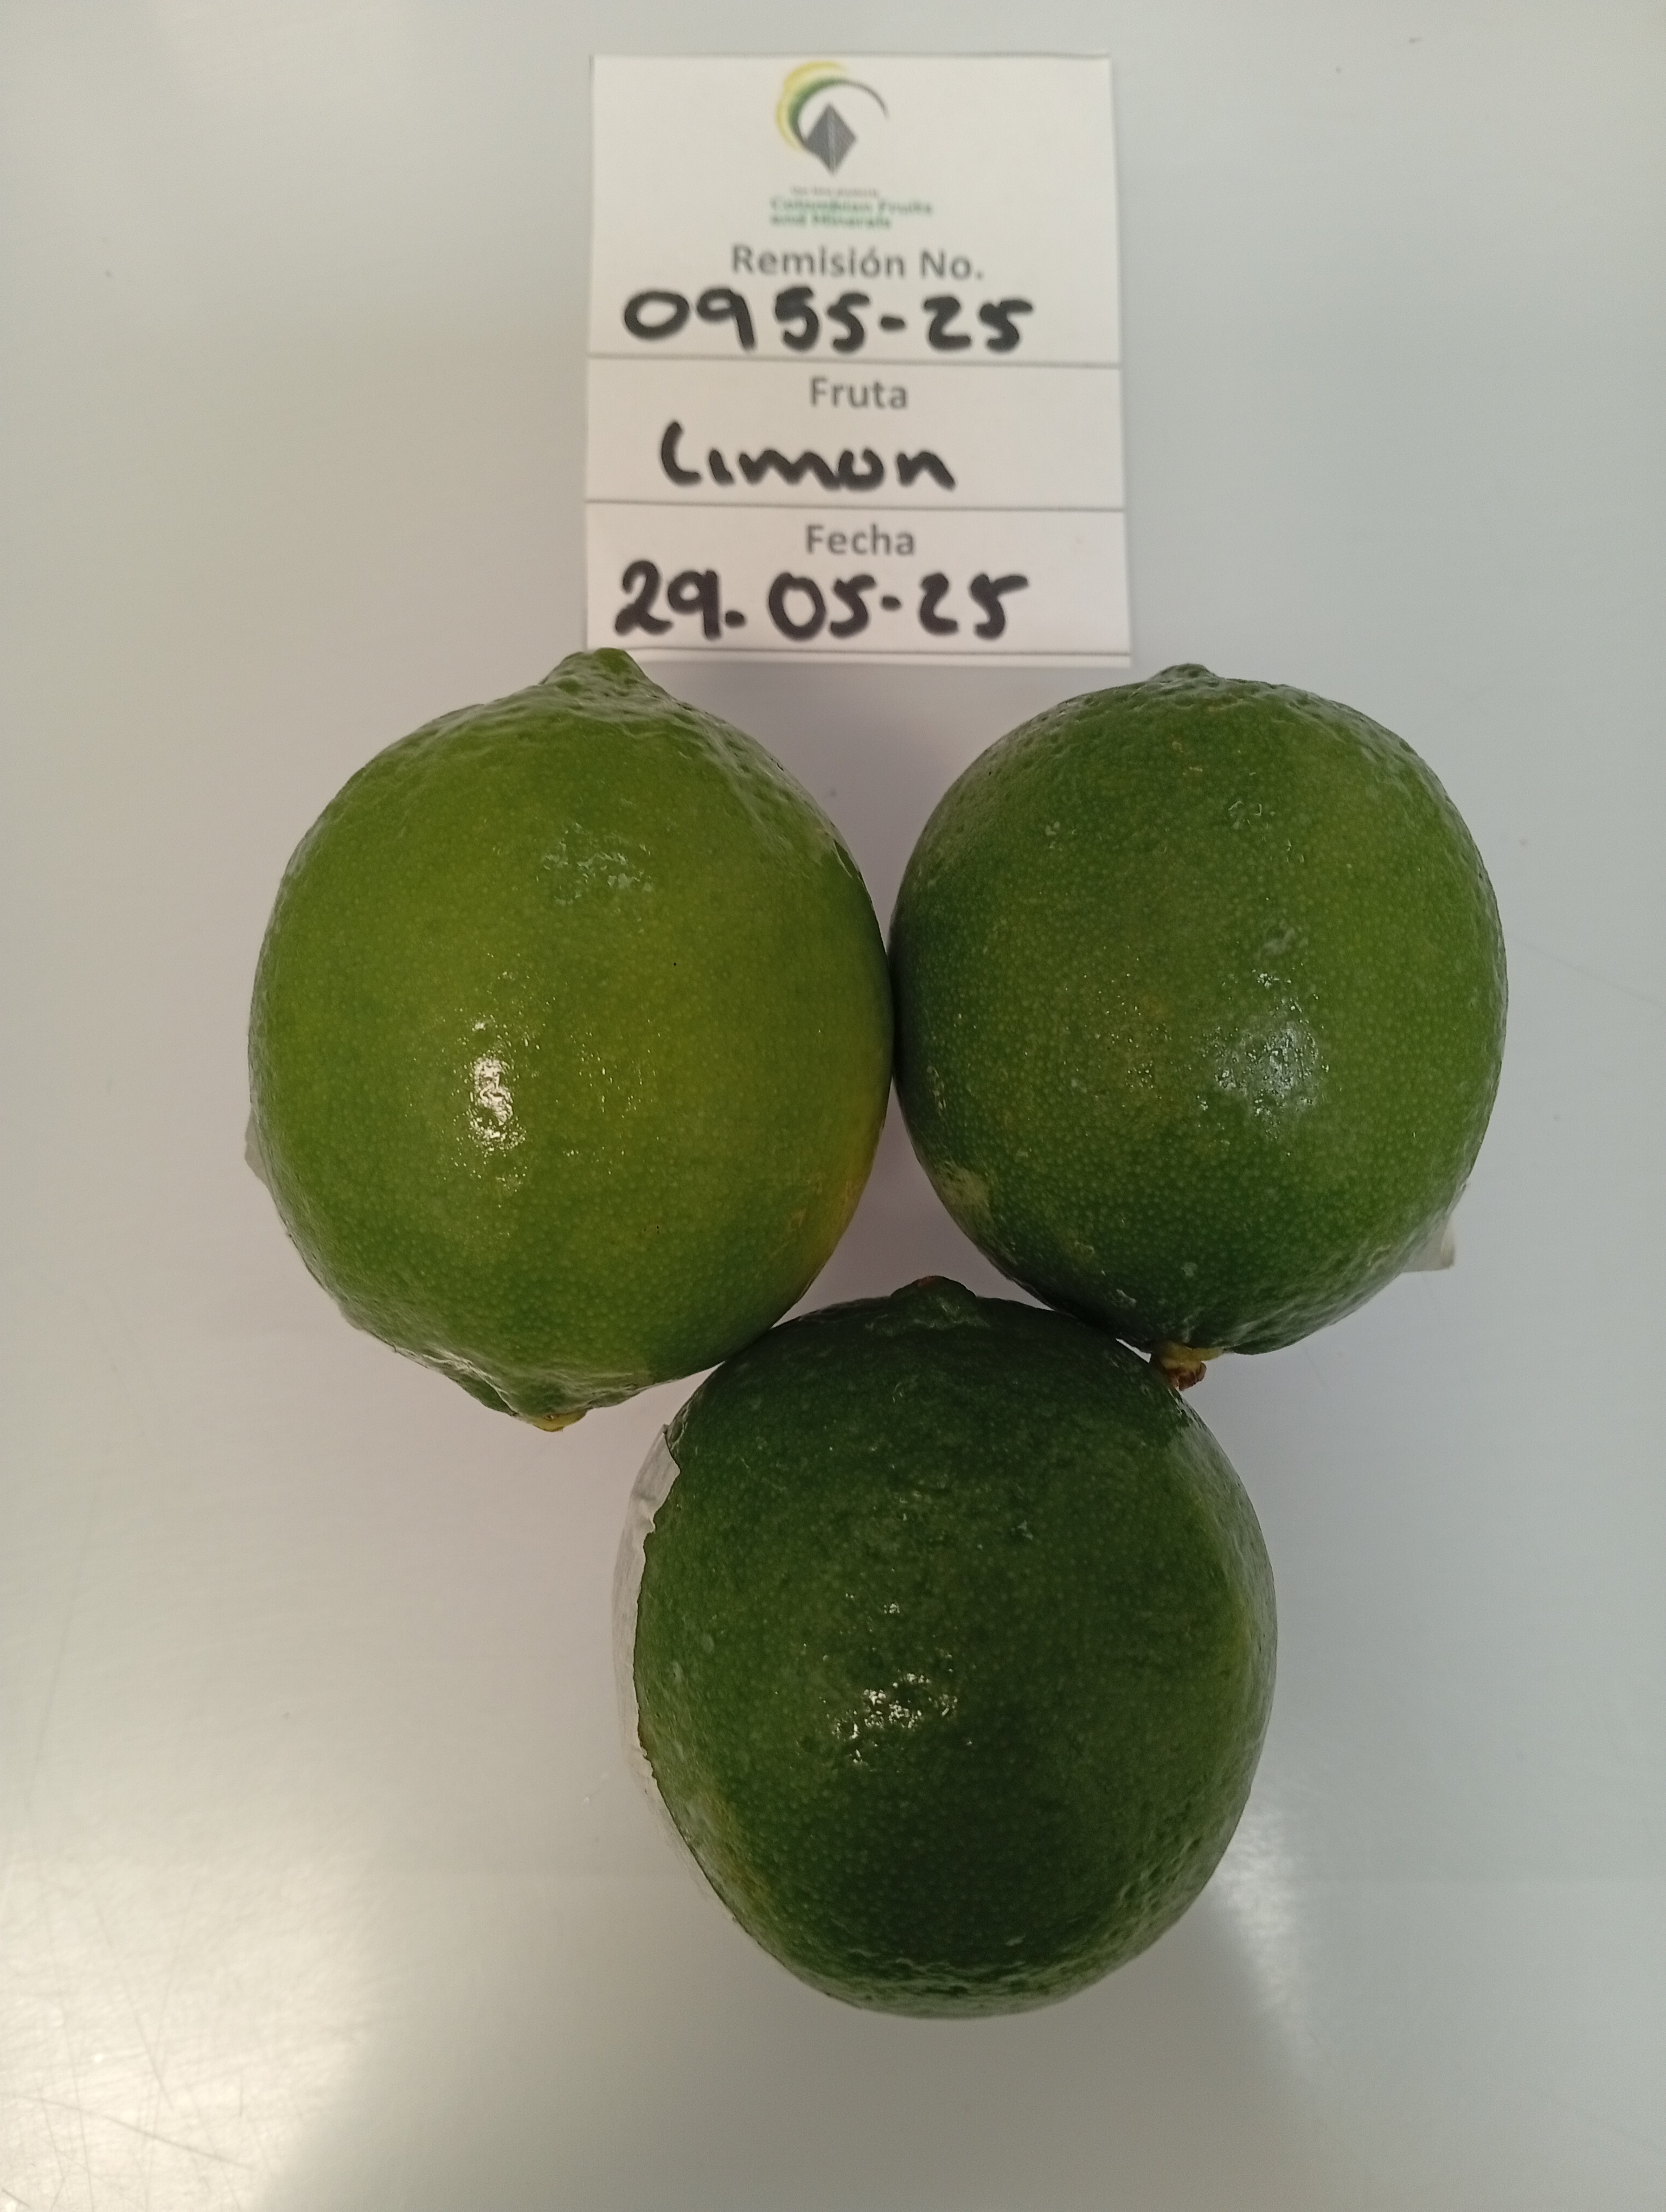 Colombian Fruits
and Minerals
Remisión No.
0955-25
Fruta
Limon
Fecha
29.05-25